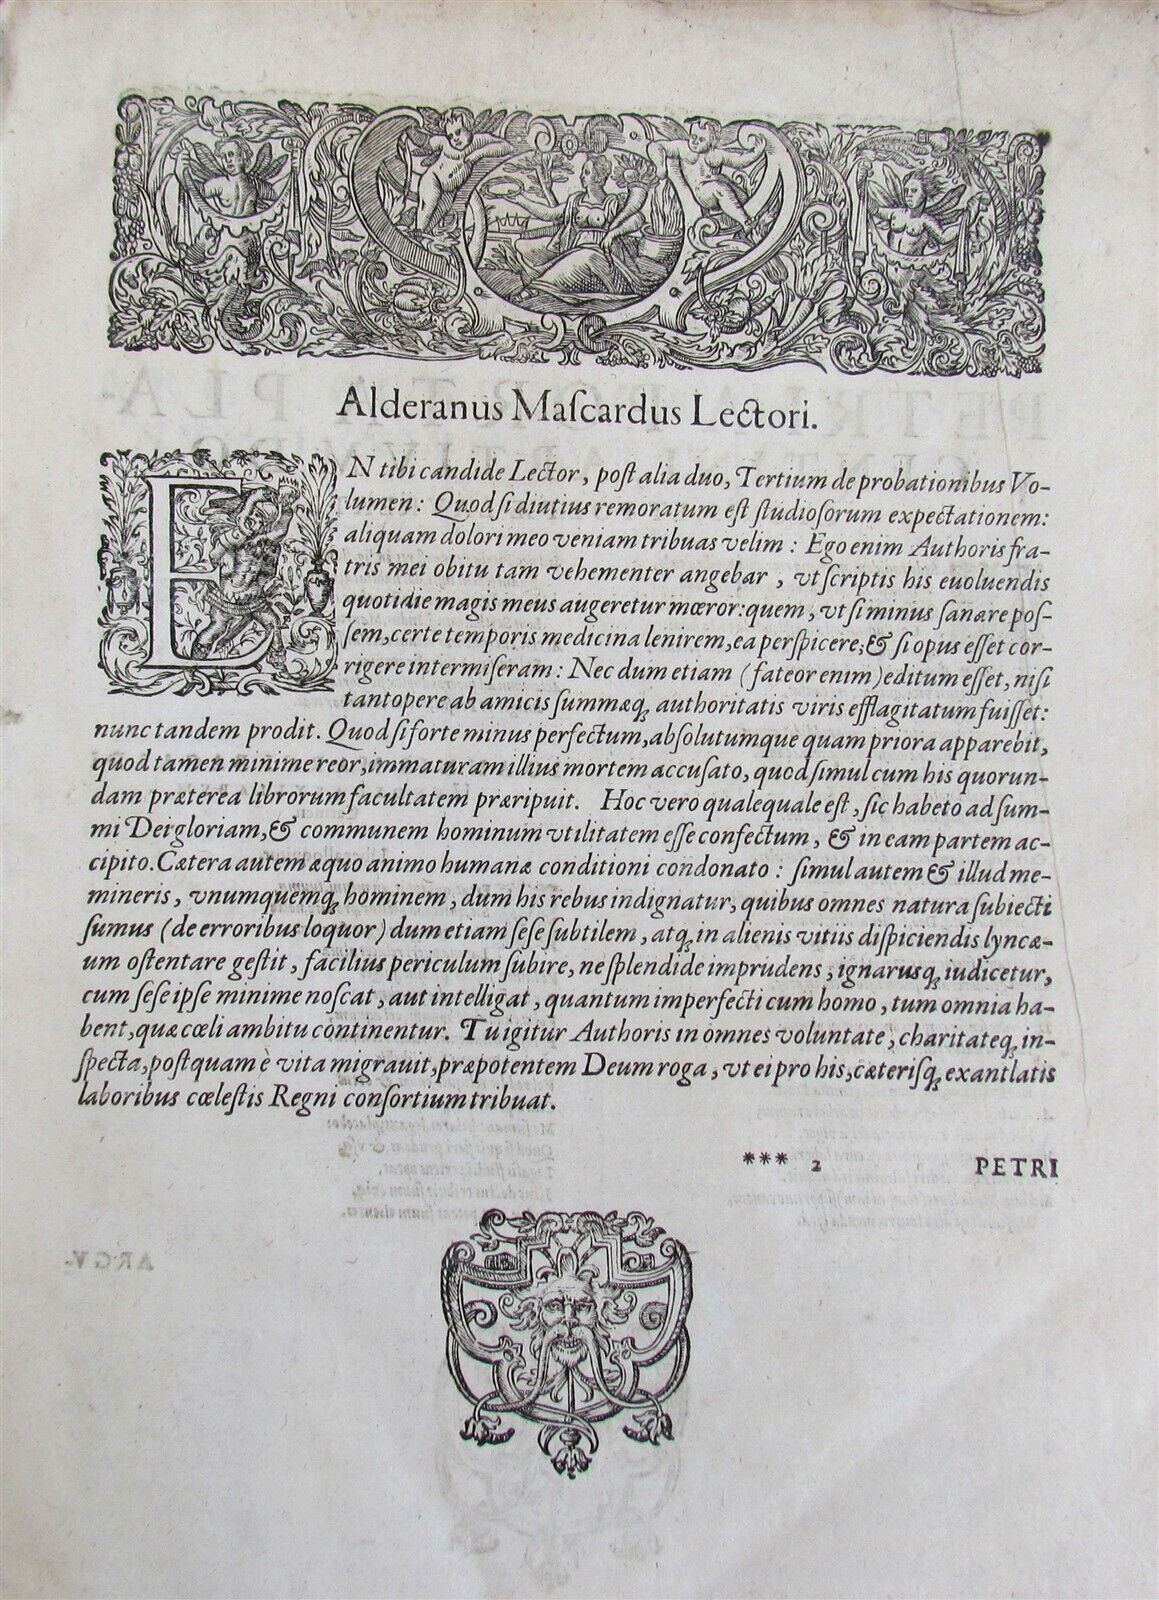 Alderanus Maſcardus Lectori.
EN tibi candide Lector, poſt alia duo, Tertium de probationibus Vo-
lumen: Quod ſi diutius remoratum eſt ſtudioſorum expectationem:
aliquam dolori meo veniam tribuas velim: Ego enim Authoris fra-
tris mei obitu tam vehementer angebar, vt ſcriptis his euoluendis
quotidie magis meus augeretur mœror: quem, vt ſi minus ſanare poſ-
ſem, certe temporis medicina lenirem, ea perſpicere, & ſi opus eſſet cor-
rigere intermiſeram: Nec dum etiam (fateor enim) editum eſſet, niſi
tantopere ab amicis ſummæq; authoritatis viris efflagitatum fuiſſet:
nunc tandem prodit. Quod ſi forte minus perfectum, abſolutumque quam priora apparebit,
quod tamen minime reor, immaturam illius mortem accuſato, quod ſimul cum his quorun-
dam præterea librorum facultatem præripuit. Hoc vero qualequale eſt, ſic habeto ad ſum-
mi Dei gloriam, & communem hominum vtilitatem eſſe confectum, & in eam partem ac-
cipito. Cætera autem æquo animo humanæ conditioni condonato: ſimul autem & illud me-
mineris, vnumquemq; hominem, dum his rebus indignatur, quibus omnes natura ſubiecti
ſumus (de erroribus loquor) dum etiam ſeſe ſubtilem, atq; in alienis vitiis diſpiciendis lyncæ-
um oſtentare geſtit, facilius periculum ſubire, ne ſplendide imprudens, ignarusq; iudicetur,
cum ſeſe ipſe minime noſcat, aut intelligat, quantum imperfecti cum homo, tum omnia ha-
bent, quæ cœli ambitu continentur. Tu igitur Authoris in omnes voluntate, charitateq; in-
ſpecta, poſtquam è vita migrauit, præpotentem Deum roga, vt ei pro his, cæteriſq; exantlatis
laboribus cœleſtis Regni conſortium tribuat.
*** 2 PETRI